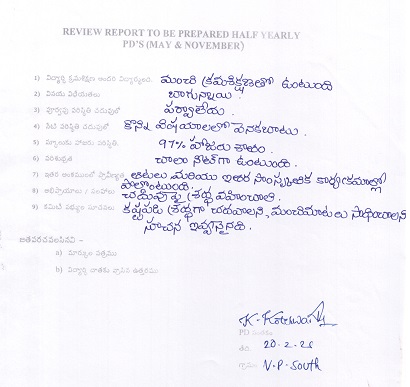 REVIEW REPORT TO BE PREPARED HALF YEARLY
PD'S (MAY & NOVEMBER)
1) విద్యార్థి క్రమశిక్షణ మంచి క్రమశిక్షణతో ఉంటుంది
2) వినయ విధేయతలు బాగున్నాయి.
3) పూర్వపు పరిస్థితి చదువులో పర్వాలేదు.
4) నేటి పరిస్థితి చదువులో కొన్ని విషయాలలో వెనకబాటు.
5) స్కూలుకు హాజరు పరిస్థితి. 97% హాజరు శాతం.
6) పరిశుభ్రత చాలా నీట్‌గా ఉంటుంది.
7) ఇతర అంశములలో ప్రావీణ్యత ఆటలు మరియు ఇతర సాంస్కృతిక కార్యక్రమాల్లో
పాల్గొంటుంది.
8) అభిప్రాయాలు / సలహాలు చదువుపై శ్రద్ధ వహించాలి.
9) కమిటీ సభ్యుల సూచనలు కష్టపడి శ్రద్ధగా చదవాలని, మంచి మార్కులు సాధించాలని
సూచన ఇవ్వనైనది.
జతపరచవలసినవి -
a) మార్కుల పత్రము
b) విద్యార్థి దాతకు వ్రాసిన ఉత్తరము
PD సంతకం
తేది. 20-2-25
గ్రామం V.P. South